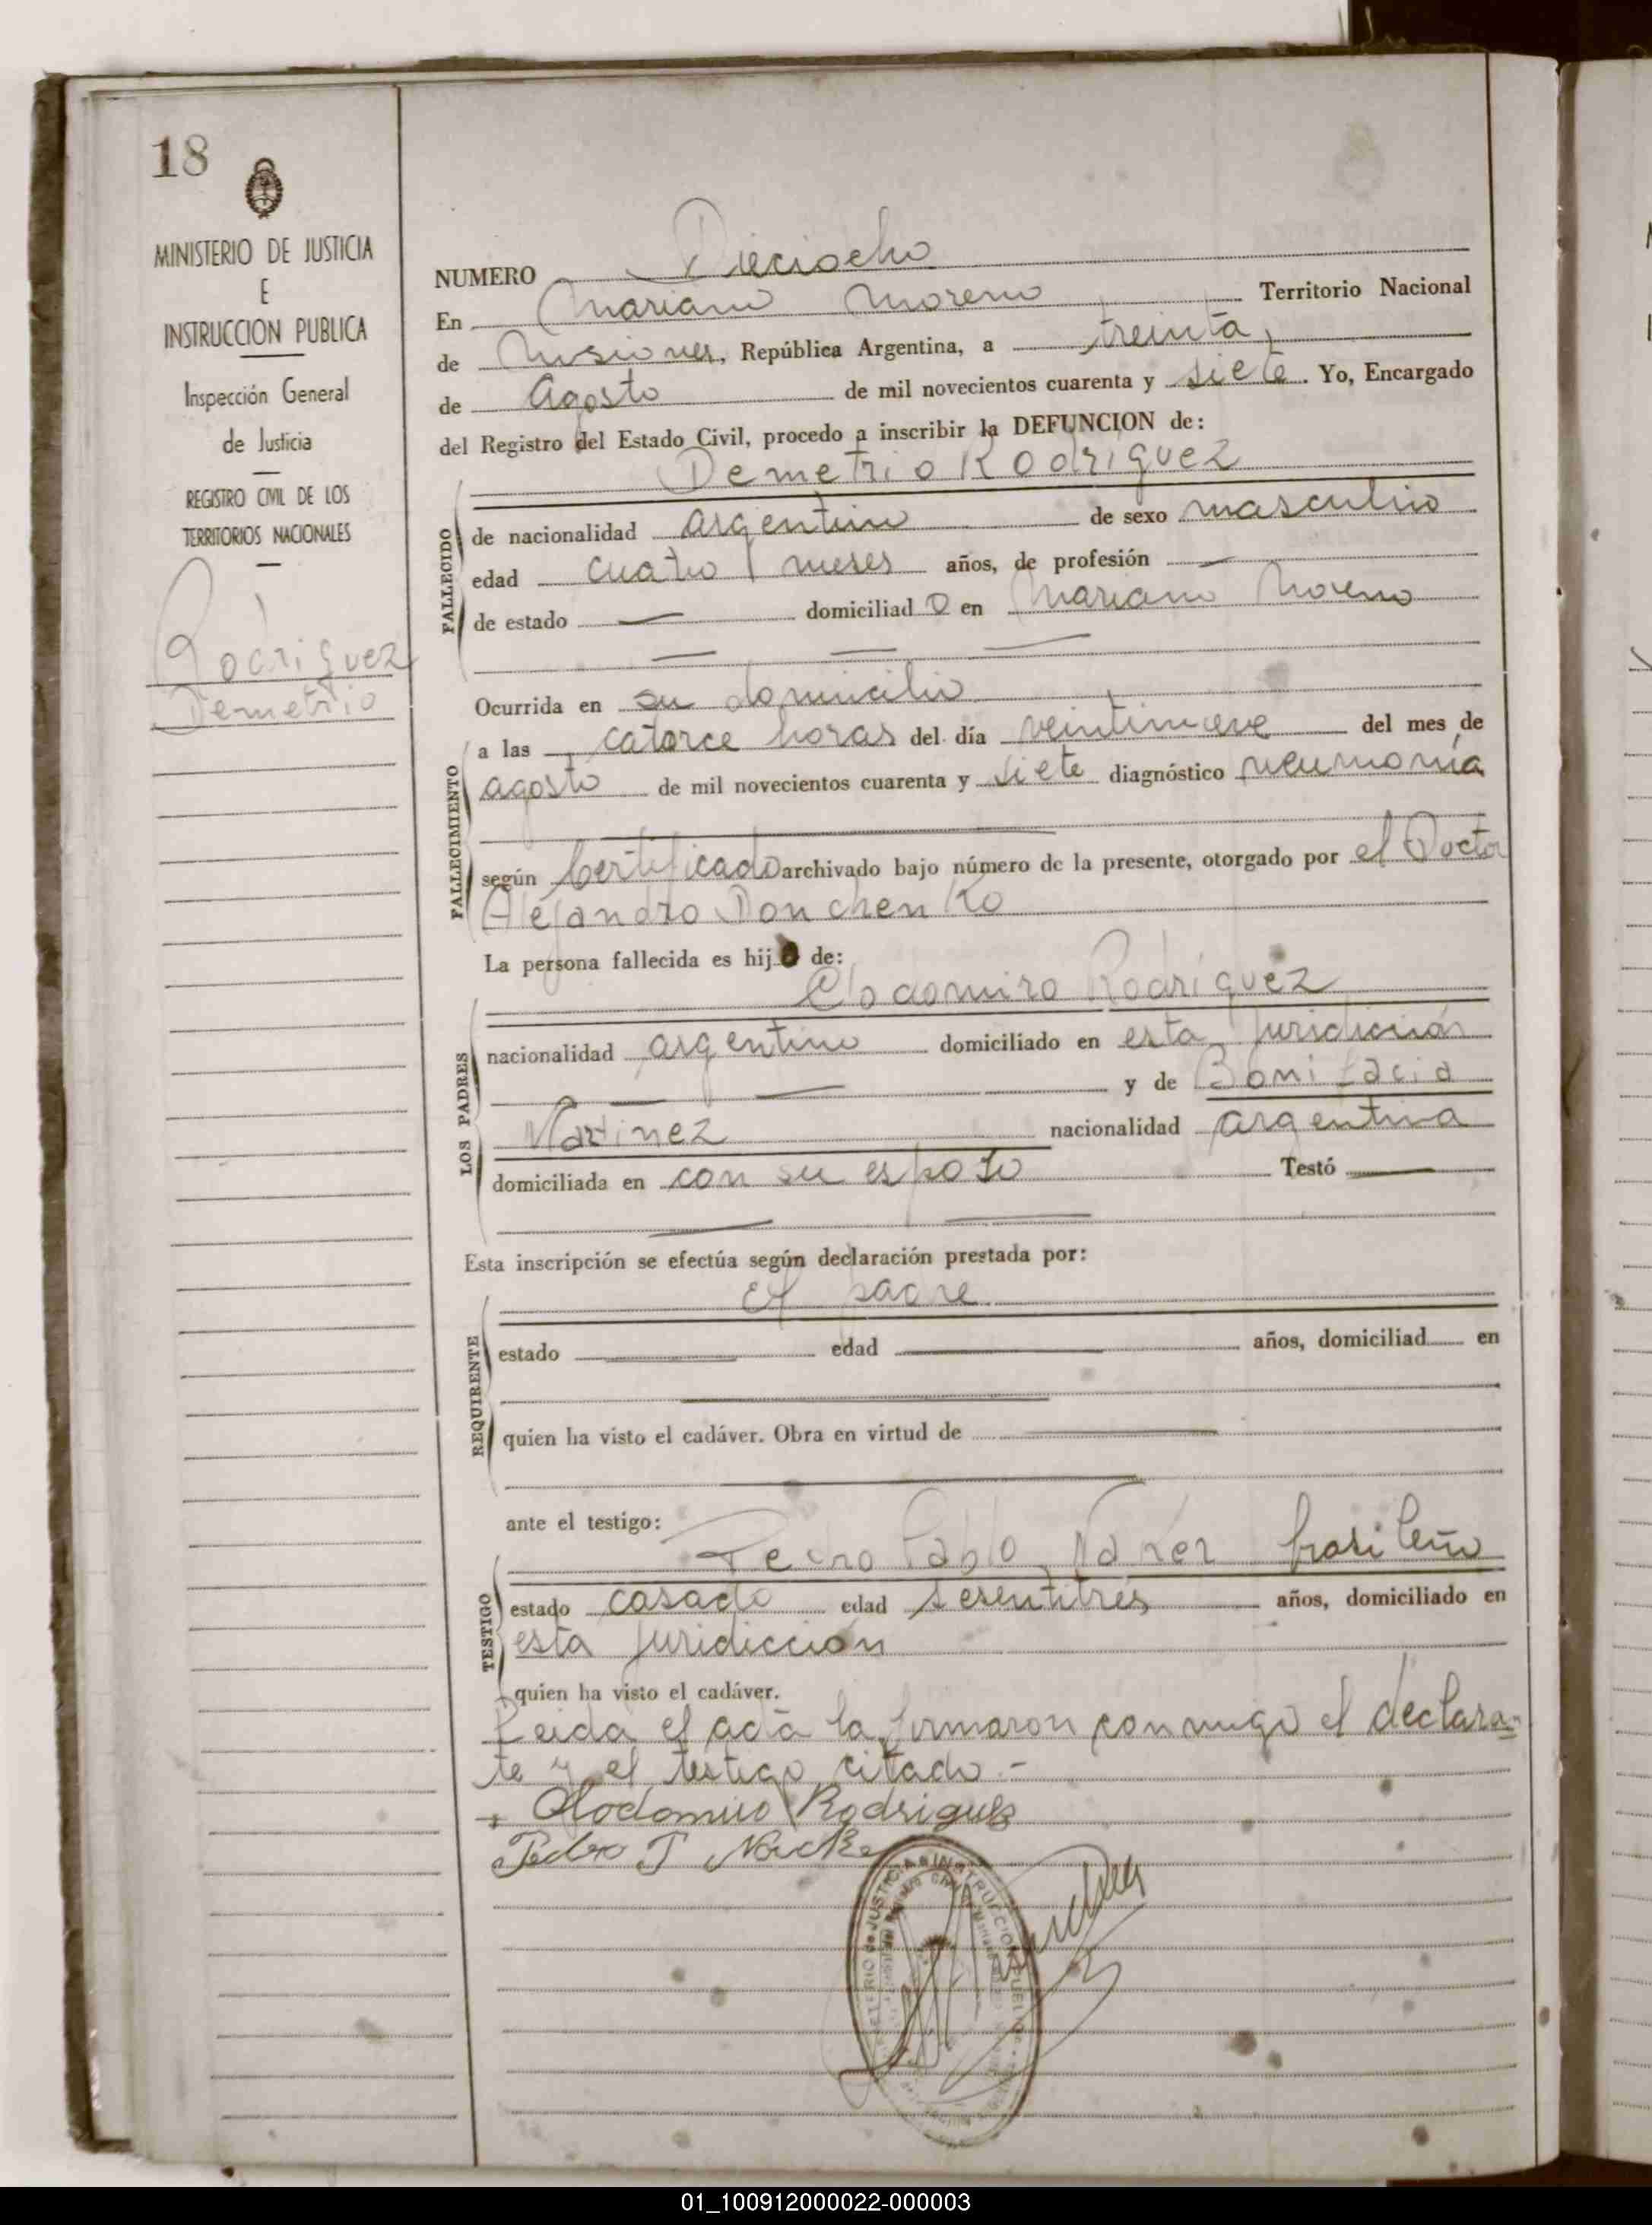 18
MINISTERIO DE JUSTICIA
E
INSTRUCCION PUBLICA
Inspección General
de Justicia
REGISTRO CIVIL DE LOS
TERRITORIOS NACIONALES
Rodriguez
Demetrio
NUMERO Dieciocho
En Mariano Moreno Territorio Nacional
de Misiones, República Argentina, a treinta
de Agosto de mil novecientos cuarenta y siete. Yo, Encargado
del Registro del Estado Civil, procedo a inscribir la DEFUNCION de:
Demetrio Rodriguez
FALLECIDO
de nacionalidad argentino de sexo masculino
edad cuatro meses años, de profesión —
de estado — domiciliado en Mariano Moreno
— — —
Ocurrida en su domicilio
FALLECIMIENTO
a las catorce horas del día veintinueve del mes de
agosto de mil novecientos cuarenta y siete diagnóstico neumonía
según Certificado archivado bajo número de la presente, otorgado por el Doctor
Alejandro Donchenko
La persona fallecida es hijo de:
Clodomiro Rodríguez
LOS PADRES
nacionalidad argentino domiciliado en esta juridición
— — y de Bonifacia
Martinez nacionalidad argentina
domiciliada en con su esposo Testó —
— —
Esta inscripción se efectúa según declaración prestada por:
el padre
REQUIRENTE
estado — edad — años, domiciliad en
—
quien ha visto el cadáver. Obra en virtud de —
—
ante el testigo:
Pedro Pablo brasileño
TESTIGO
estado casado edad sesentitres años, domiciliado en
esta juridiccion
quien ha visto el cadáver.
Leida el acta la firmaron conmigo el declaran-
te y el testigo citado.-
Clodomiro Rodriguez
Pedro P
01_100912000022-000003